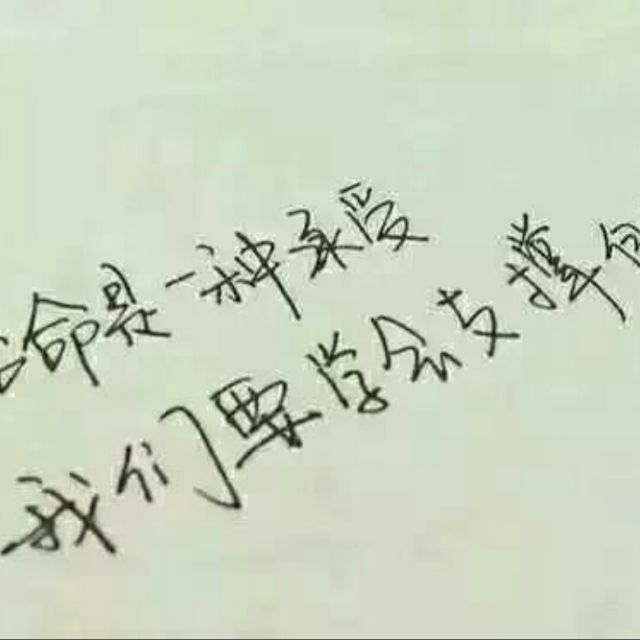 命是一种承受
我们要学会支撑